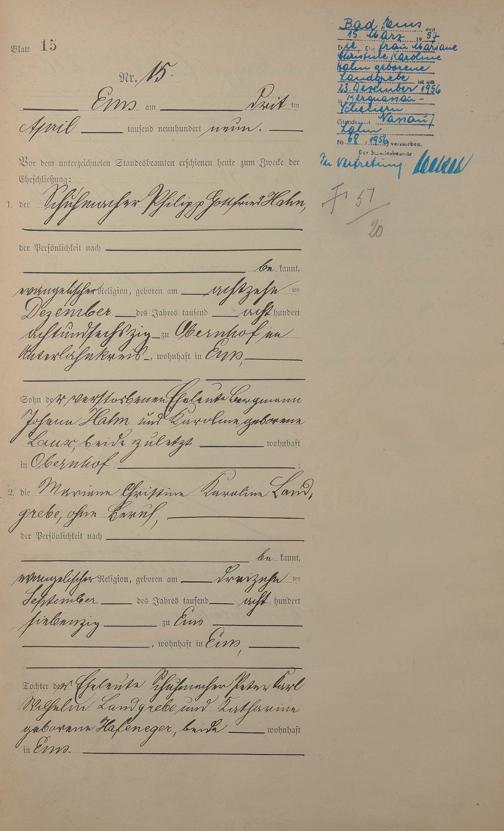 Blatt 15
Nr. 15.
Ems am drit ten
April tausend neunhundert neun.
Vor dem unterzeichneten Standesbeamten erschienen heute zum Zwecke der
Eheschließung:
1. der Schuhmacher Philipp Gottfried Hahn,
der Persönlichkeit nach
be kannt,
evangelischer Religion, geboren am achtzehn ten
Dezember des Jahres tausend acht hundert
achtundsechszig zu Obernhof im
Unterlahnkreis, wohnhaft in Ems,
Sohn der verstorbenen Eheleute Bergmann
Johann Hahn und Karoline geborene
Laux, beide zuletzt wohnhaft
in Obernhof
2. die Mariane Christine Karoline Land,
grebe, ohne Beruf,
der Persönlichkeit nach
be kannt,
evangelischer Religion, geboren am dreizehn ten
September des Jahres tausend acht hundert
siebenzig zu Ems
, wohnhaft in Ems,
Tochter der Eheleute Schuhmacher Peter Karl
Wilhelm Landgrebe und Katharine
geborene Hafeneger, beide wohnhaft
in Ems.
Bad Ems, den
15. März 1957
Die Frau Mariane
Christine Karoline
Hahn geborene
Landgrebe ist am
23. Dezember 1956
in Bergnassau-
Scheuern
Standesamt Nassau/
Lahn
Nr. 68 / 1956 verstorben.
Der Standesbeamte
In Vertretung
F 51
20